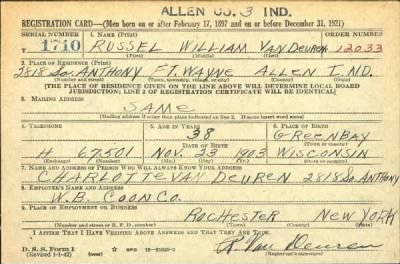 ALLEN CO. 3 IND.
REGISTRATION CARD—(Men born on or after February 17, 1897 and on or before December 31, 1921)
SERIAL NUMBER 1. NAME (Print) ORDER NUMBER
T 1710 RUSSEL WILLIAM VAN DEUREN 12033
(First) (Middle) (Last)
2. PLACE OF RESIDENCE (Print)
2818 So. ANTHONY FT. WAYNE ALLEN IND.
(Number and street) (Town, township, village, or city) (County) (State)
[THE PLACE OF RESIDENCE GIVEN ON THE LINE ABOVE WILL DETERMINE LOCAL BOARD
JURISDICTION; LINE 2 OF REGISTRATION CERTIFICATE WILL BE IDENTICAL]
3. MAILING ADDRESS
SAME
[Mailing address if other than place indicated on line 2. If same insert word same]
4. TELEPHONE 5. AGE IN YEARS 6. PLACE OF BIRTH
38 GREEN BAY
DATE OF BIRTH (Town or county)
H 67501 Nov. 23 1903 WISCONSIN
(Exchange) (Number) (Mo.) (Day) (Yr.) (State or country)
7. NAME AND ADDRESS OF PERSON WHO WILL ALWAYS KNOW YOUR ADDRESS
CHARLOTTE VAN DEUREN 2818 So. ANTHONY
8. EMPLOYER'S NAME AND ADDRESS
W. B. COON CO.
9. PLACE OF EMPLOYMENT OR BUSINESS
ROCHESTER NEW YORK
(Number and street or R. F. D. number) (Town) (County) (State)
I AFFIRM THAT I HAVE VERIFIED ABOVE ANSWERS AND THAT THEY ARE TRUE.
D. S. S. Form 1
(Revised 1-1-42) (over) GPO
R. Van Deuren
(Registrant's signature)